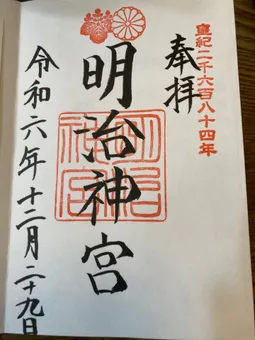 皇紀二千六百八十四年
奉拝
明治神宮
令和六年十二月二十九日
明治神宮